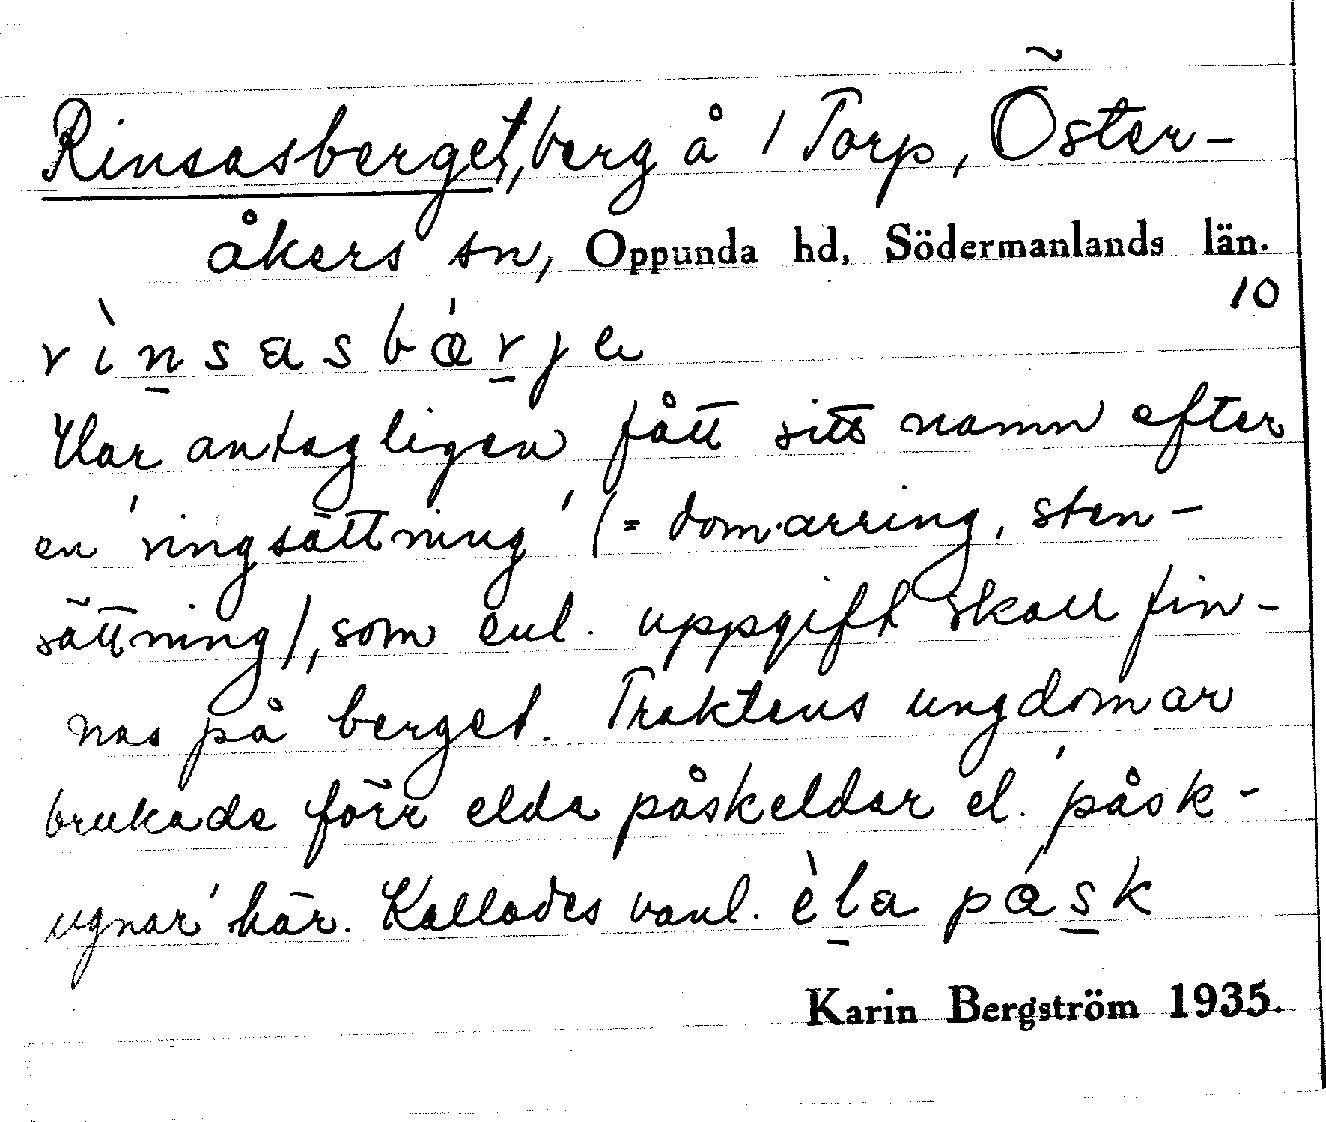 Rinsasberget, berg å 1 Torp, Öster-
åkers sn, Oppunda hd, Södermanlands län.
10
rìn̲sasbá̊r̲je
Har antagligen fått sitt namn efter
en 'ringsättning' (= domarring, sten-
sättning), som enl. uppgift skall fin-
nas på berget. Traktens ungdomar
brukade förr elda påskeldar el. 'påsk-
ugnar' här. Kallades vanl. èl̲a pás̲k
Karin Bergström 1935.